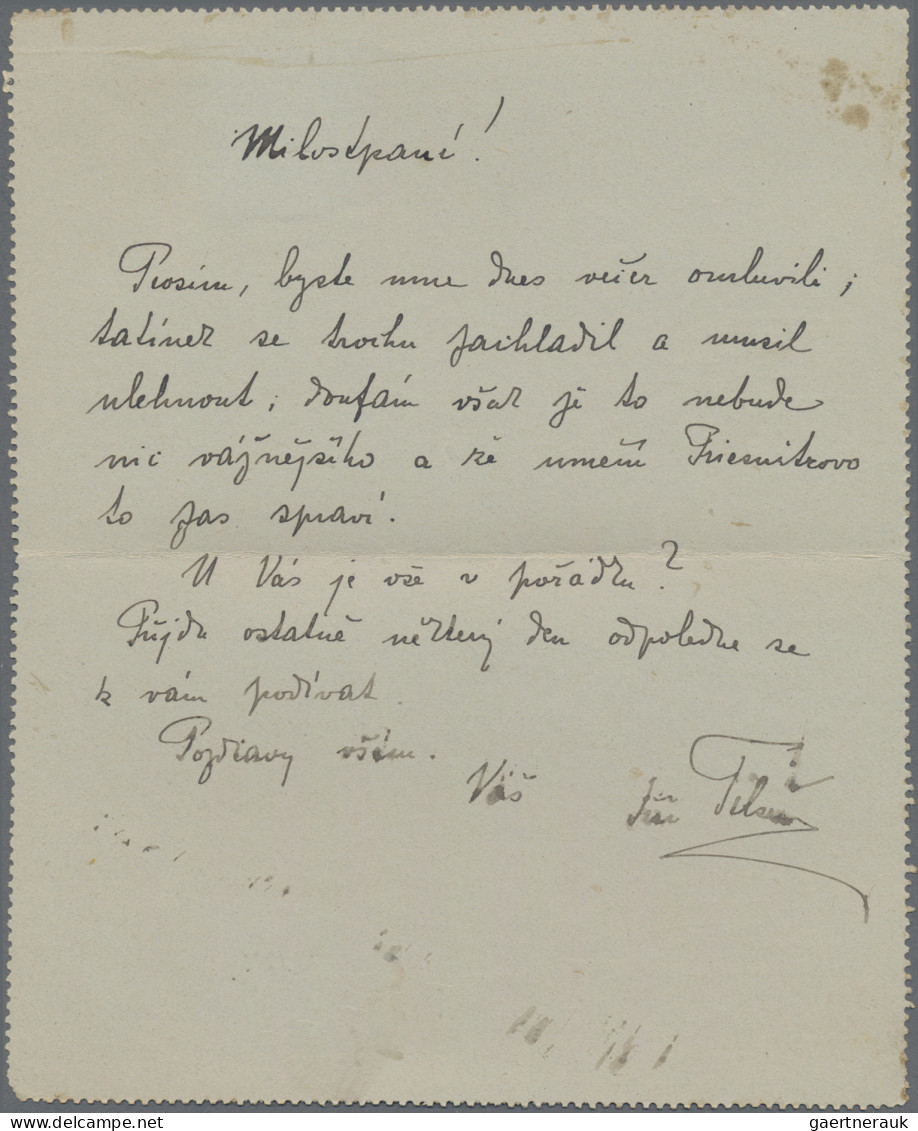 Milostpaní!
Prosím, byste mne dnes večer omluvili;
tatínek se trochu zachladil a musil
ulehnout; doufám však že to nebude
nic vážnějšího a že umění Priesnitzovo
to zas spraví.
U Vás je vše v pořádku?
Přijdu ostatně některý den odpoledne se
k vám podívat.
Pozdravy všem.
Váš Jiří
gaertnerauk